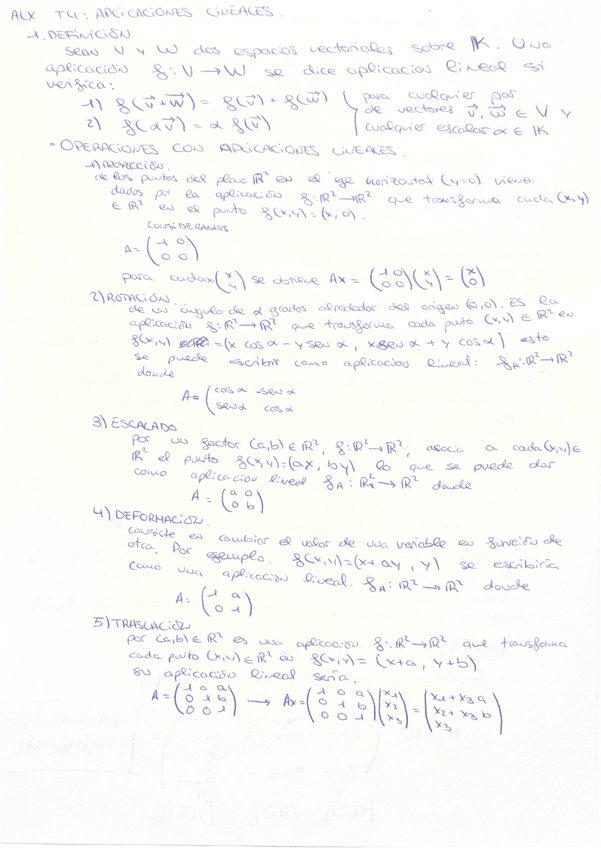 ALX T4: APLICACIONES LINEALES.
1. DEFINICIÓN
Sean V y W dos espacios vectoriales sobre K. Una
aplicación f: V → W se dice aplicación lineal si
verifica:
1) f(v⃗+w⃗) = f(v⃗) + f(w⃗) ( para cualquier par
2) f(αv⃗) = α f(v⃗) de vectores v⃗, w⃗ ∈ V y
cualquier escalar α ∈ K
• OPERACIONES CON APLICACIONES LINEALES.
1) PROYECCIÓN.
de los puntos del plano R² en el eje horizontal (y=0) viene
dados por la aplicación f: R² → R² que transforma cada (x,y)
∈ R² en el punto f(x,y) = (x, 0).
CONSIDERAMOS
A = (1 0
0 0)
para cada x (x
y) se obtiene Ax = (1 0
0 0) (x
y) = (x
0)
2) ROTACIÓN.
de un ángulo de α grados alrededor del origen (0,0). Es la
aplicación f: R² → R² que transforma cada punto (x,y) ∈ R² en
f(x,y) = (x cos α - y sen α, x sen α + y cos α) esto
se puede escribir como aplicación lineal: f_A: R² → R²
donde
A = (cos α -sen α
sen α cos α)
3) ESCALADO
por un factor (a,b) ∈ R², f: R² → R², asocia a cada (x,y) ∈
R² el punto f(x,y) = (ax, by) lo que se puede dar
como aplicación lineal f_A: R² → R² donde
A = (a 0
0 b)
4) DEFORMACIÓN.
consiste en cambiar el valor de una variable en función de
otra. Por ejemplo. f(x,y) = (x + ay, y) se escribiría
como una aplicación lineal. f_A: R² → R² donde
A: (1 a
0 1)
5) TRASLACIÓN
por (a,b) ∈ R² es una aplicación f: R² → R² que transforma
cada punto (x,y) ∈ R² en f(x,y) = (x+a, y+b)
su aplicación lineal sería.
A = (1 0 a
0 1 b
0 0 1) → Ax = (1 0 a
0 1 b
0 0 1) (x1
x2
x3) = (x1 + x3 a
x2 + x3 b
x3)